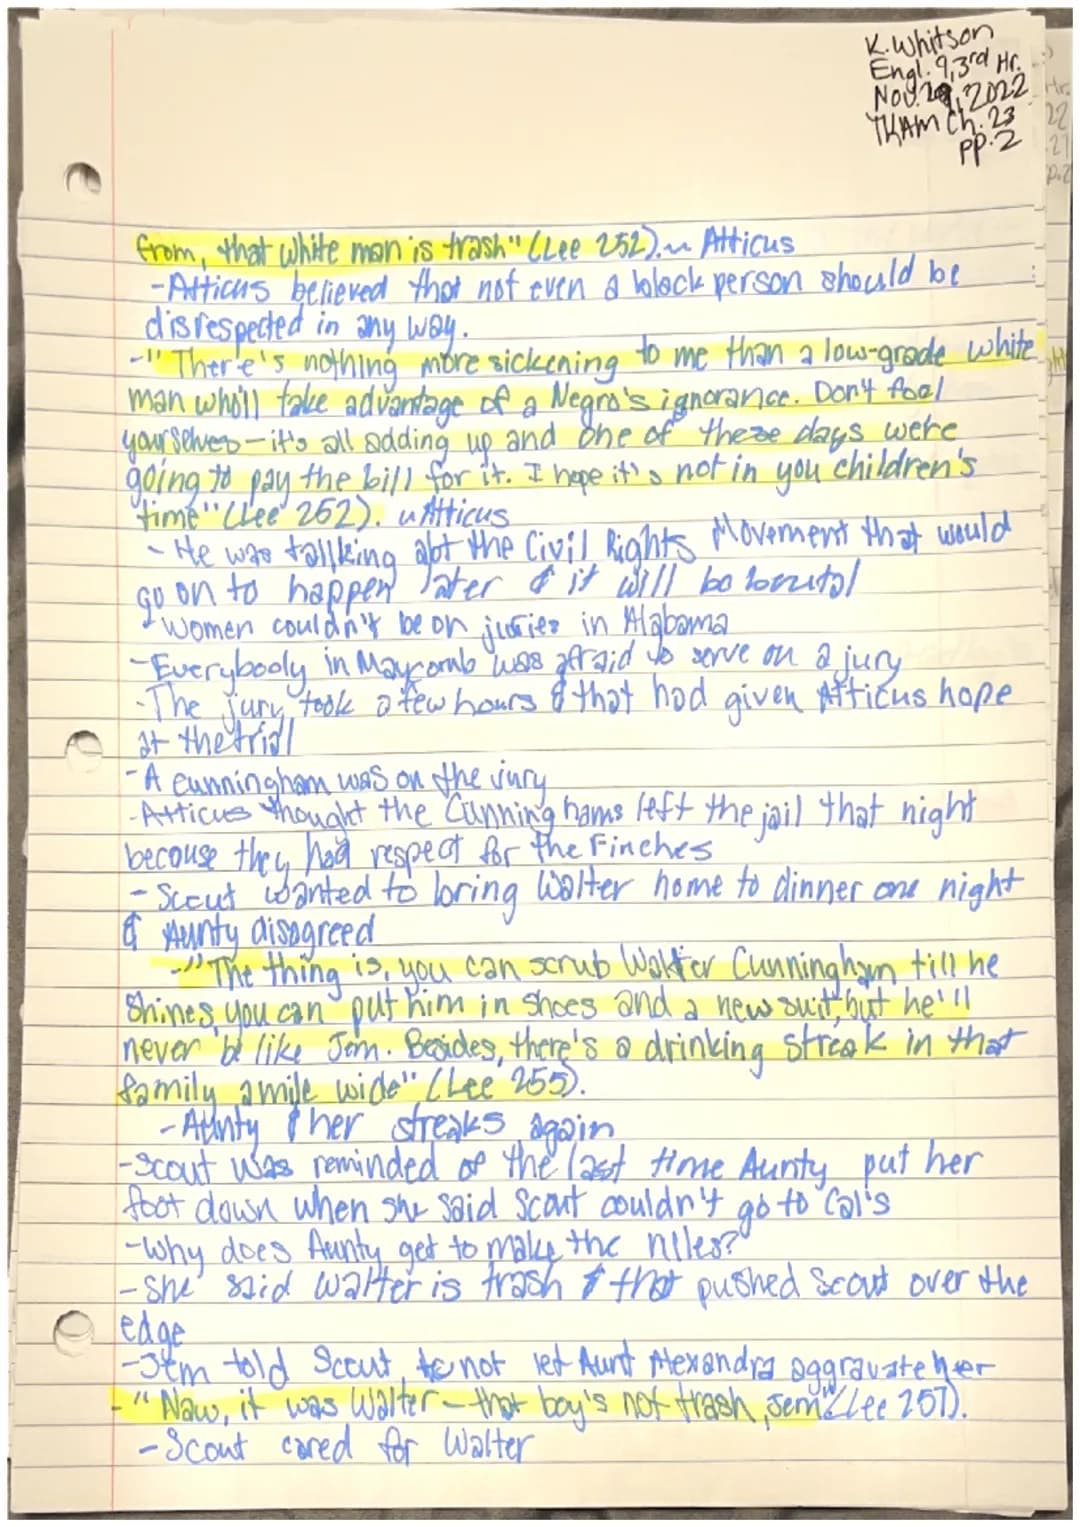 K. Whitson
Engl. 9, 3rd Hr.
Nov. 29, 2022
TKAM Ch. 23
pp. 2
from, that white man is trash" (Lee 252). ~ Atticus
-Atticus believed that not even a black person should be
disrespected in any way.
-"There's nothing more sickening to me than a low-grade white
man who'll take advantage of a Negro's ignorance. Don't fool
yourselves-it's all adding up and one of these days we're
going to pay the bill for it. I hope it's not in you children's
time" (Lee 252). ~ Atticus
- He was tallking abt the Civil Rights Movement that would
go on to happen later & it will be brutal
- Women couldn't be on juries in Alabama
-Everybody in Maycomb was afraid to serve on a jury
-The jury took a few hours & that had given Atticus hope
at the trial
-A Cunningham was on the jury
-Atticus thought the Cunninghams left the jail that night
because they had respect for the Finches
- Scout wanted to bring Walter home to dinner one night
& Aunty disagreed
-"The thing is, you can scrub Walter Cunningham till he
shines, you can put him in shoes and a new suit, but he'll
never be like Jem. Besides, there's a drinking streak in that
family a mile wide" (Lee 255).
-Aunty & her streaks again
-Scout was reminded of the last time Aunty put her
foot down when she said Scout couldn't go to Cal's
-Why does Aunty get to make the rules?
-She said Walter is trash & that pushed Scout over the
edge
-Jem told Scout to not let Aunt Alexandra aggravate her
-"Naw, it was Walter-that boy's not trash, Jem" (Lee 257).
-Scout cared for Walter